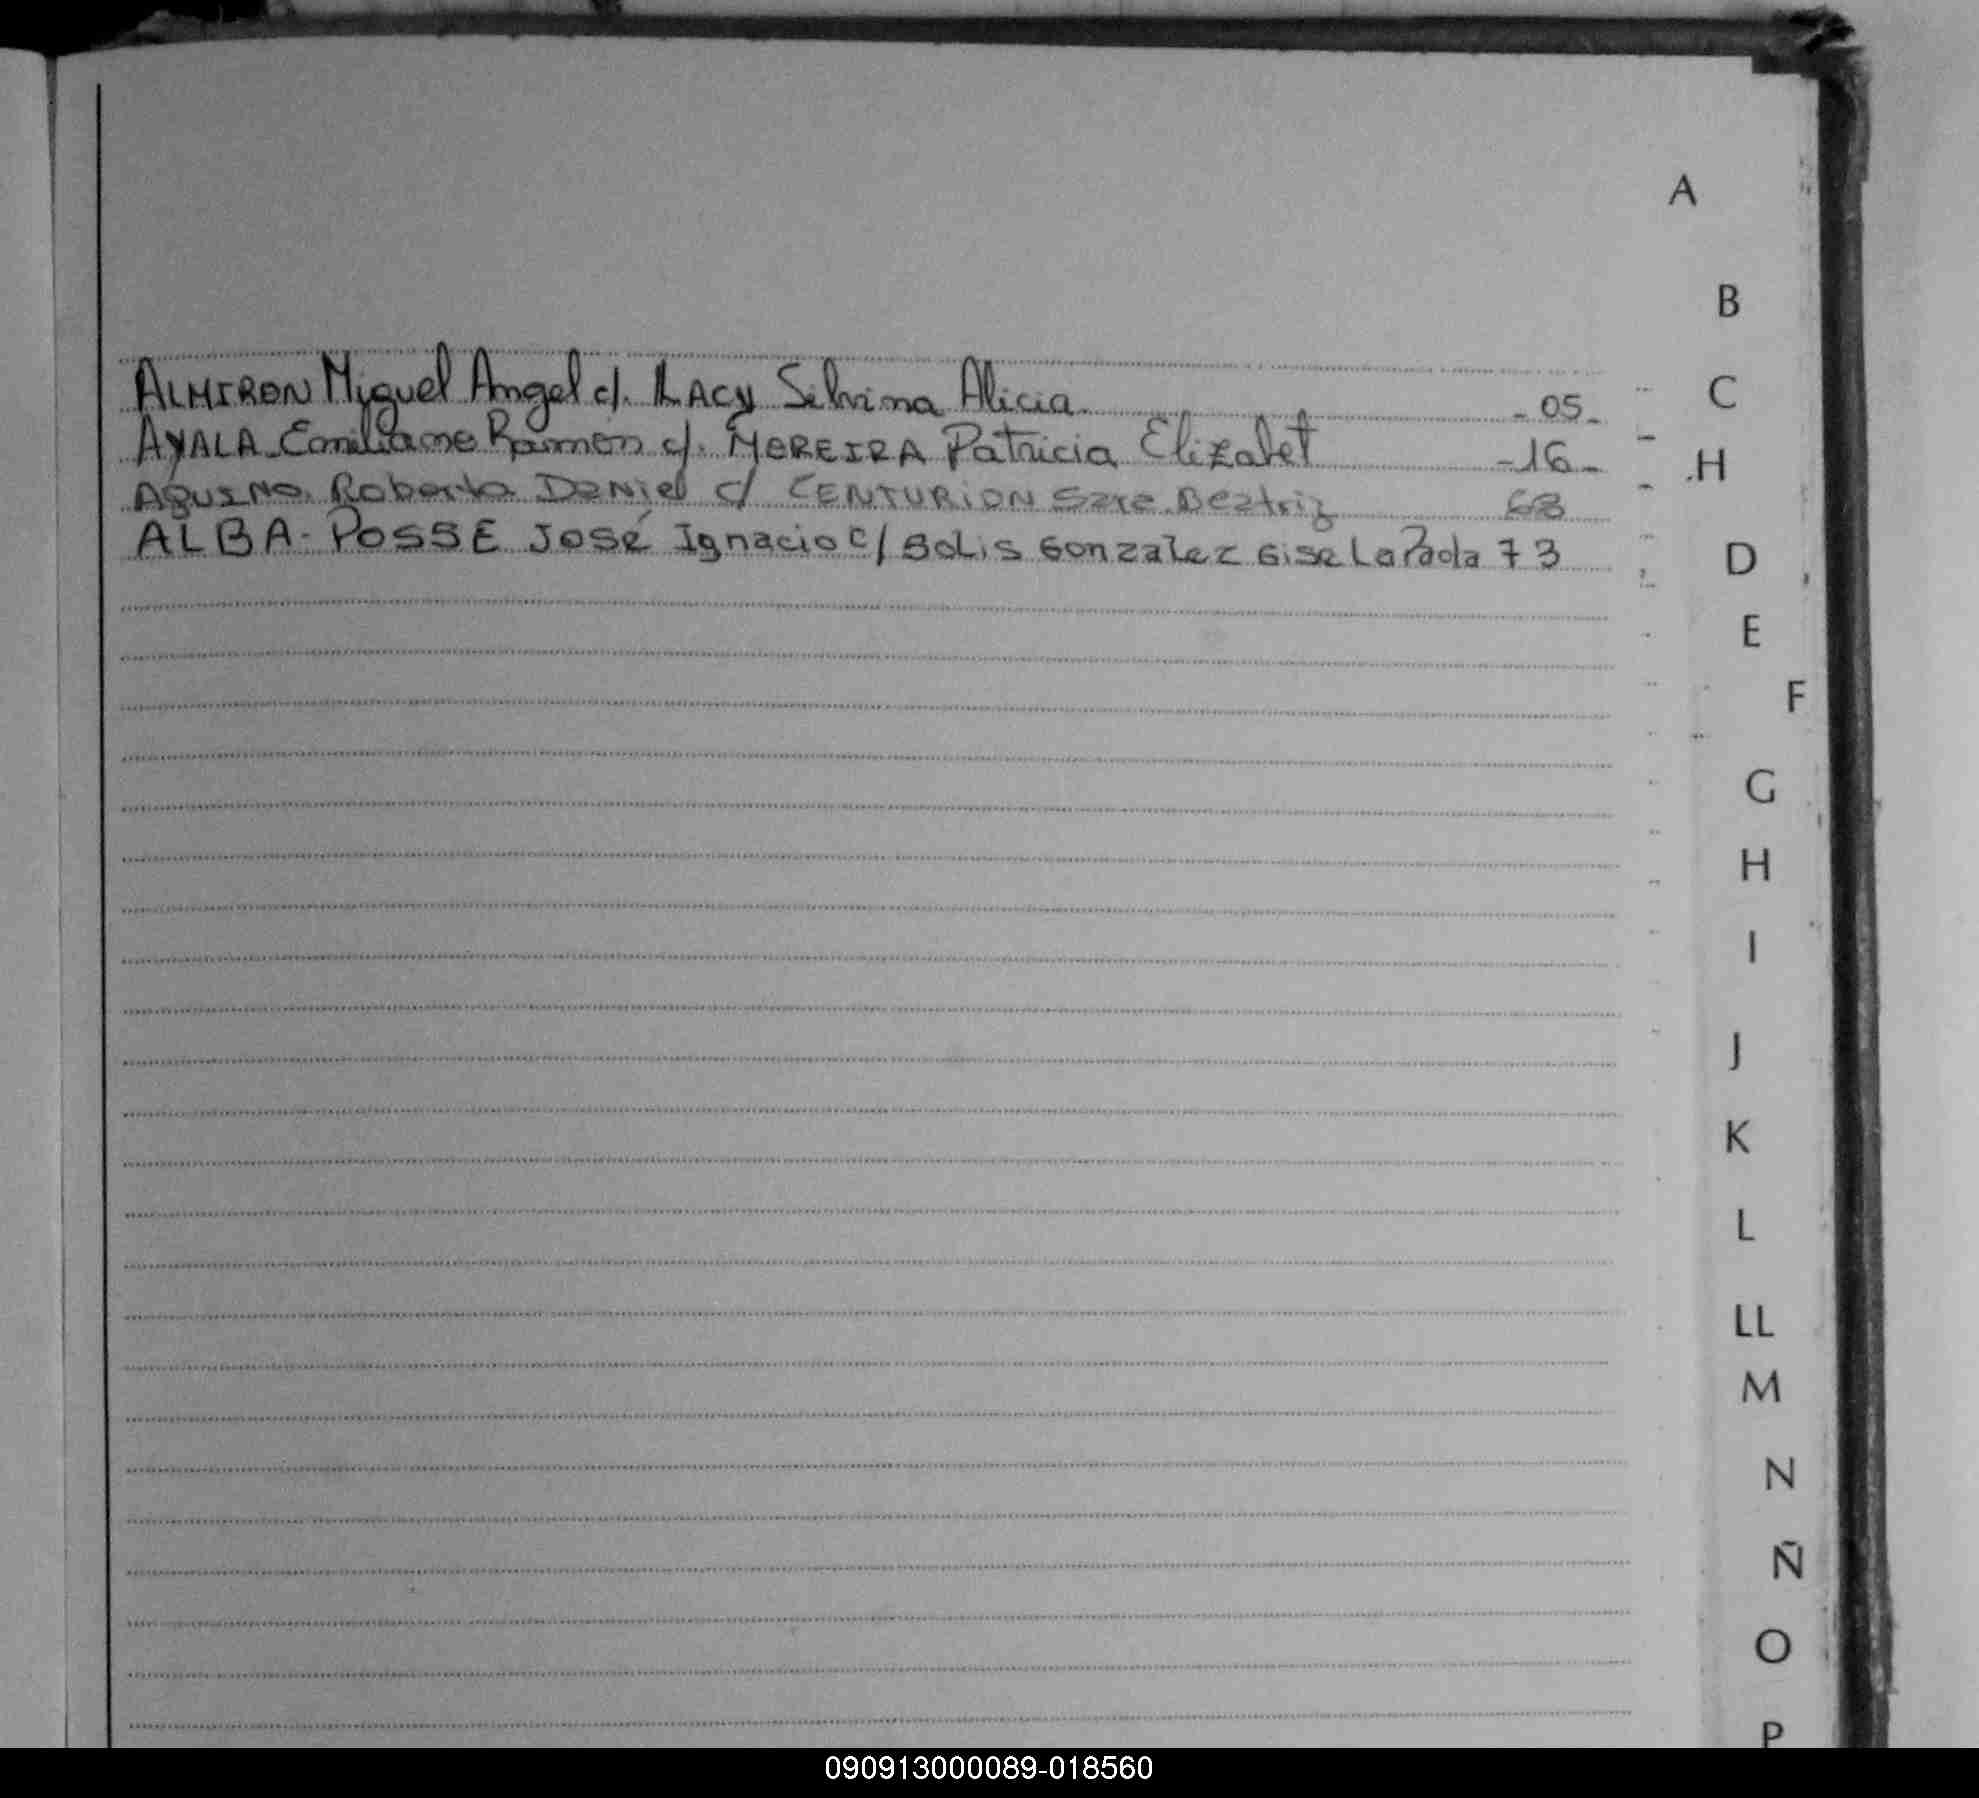 A
B
ALMIRON Miguel Angel c/. LACY Silvina Alicia - 05 -
C
AYALA Emiliano Ramón c/. MEREIRA Patricia Elizabet - 16 -
H
AQUINO Roberto Daniel c/ CENTURION Sara Beatriz 68
ALBA-POSSE José Ignacio c/ Solis Gonzalez Gisela Paola 73
D
E
F
G
H
I
J
K
L
LL
M
N
Ñ
O
P
090913000089-018560